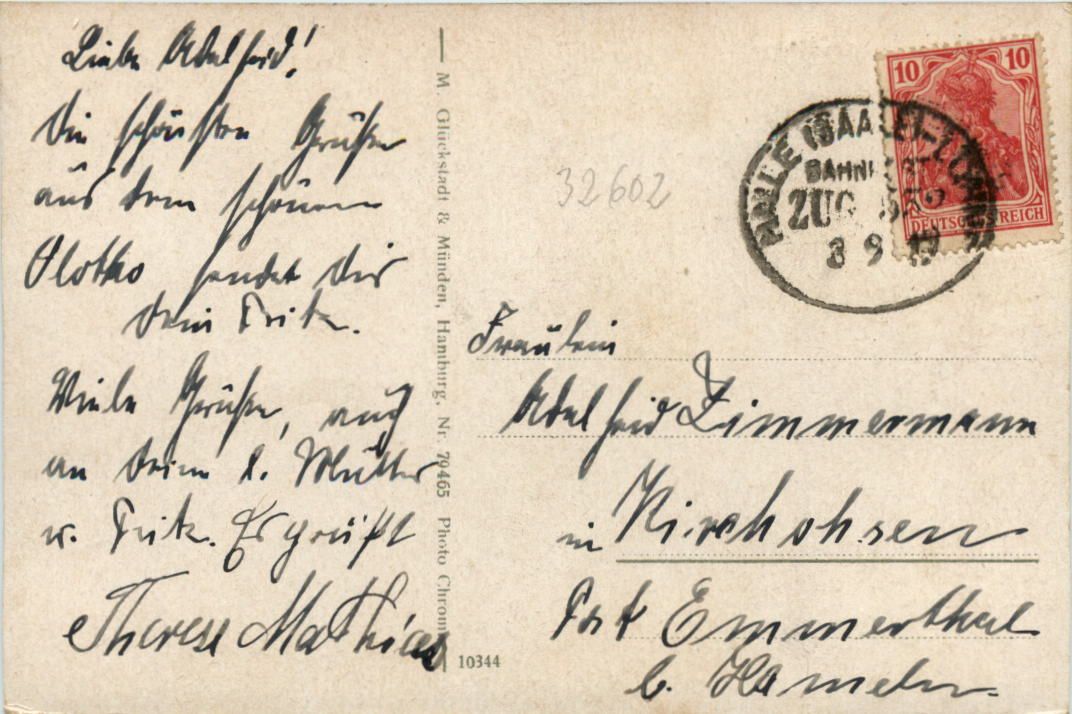 Liebe Adelheid!
Die schönsten Grüße
aus dem schönen
Vlotho sendet dir
dein Fritz.
Viele Grüße, auch
an deine l. Mutter
u. Fritz. Es grüßt
Therese Mathias
M. Glückstadt & Münden, Hamburg, Nr. 79465 Photo Chrom
10344
32602
10 10
DEUTSCHES REICH
HALLE (SAALE)-
BAHNPOST
ZUG
3 9
Fräulein
Adelheid Zimmermann
in Kirchohsen
Post Emmerthal
b. Hameln.